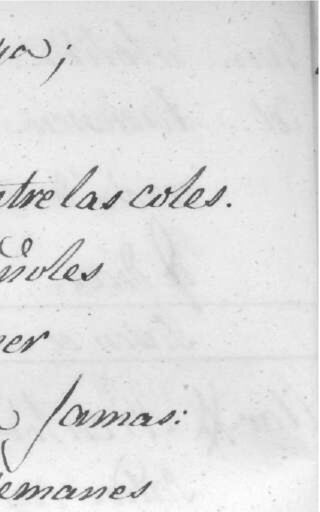 ya;
ntre las coles.
ñoles
ner
Jamas:
lemanes